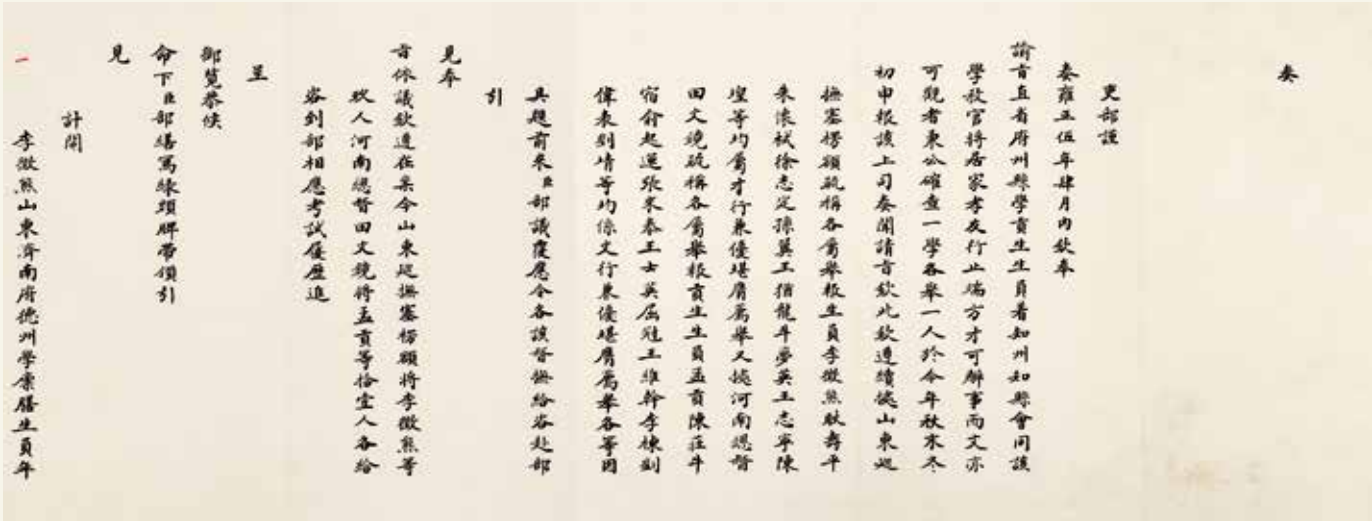 奏
吏部謹
奏雍正伍年肆月内欽奉
諭旨直省府州縣學貢生生員着知州知縣會同該
學教官將居家孝友行止端方才可辦事而文亦
可觀者秉公確查一學各舉一人於今年秋末冬
初申報該上司奏聞請旨欽此欽遵續據山東巡
撫塞楞額疏稱各屬舉報生員李徵熊耿壽平
朱懷栻徐志定孫翼王猶龍牛夢英王志寧陳
堂等均屬才行兼優堪膺薦舉又據河南總督
田文鏡疏稱各屬舉報貢生生員孟貢陳莊牛
宿俞起運張宋泰王士英屈冠王維幹李棟劉
偉袁別峕等均係文行兼優堪膺薦舉各等因
具題前來臣部議覆應令各該督撫給咨赴部
引
見奉
旨依議欽遵在案今山東巡撫塞楞額將李徵熊等
玖人河南總督田文鏡將孟貢等拾壹人各給
咨到部相應考試履歷進
呈
御覽恭候
命下臣部繕寫綠頭牌帶領引
見
計開
一
李徵熊山東濟南府德州學廩膳生員年